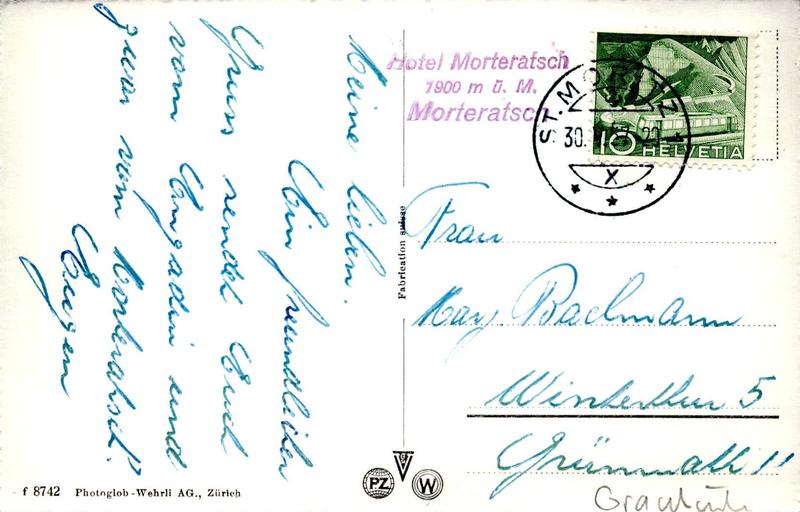 Meine lieben.
Ein freundlicher
Gruss sendet Euch
vom Engadin und
zwar vom Morteratsch!
Eugen
Hotel Morteratsch
1900 m ü. M.
Morteratsch
ST. MORITZ 1
30. 57. 20
X
10 HELVETIA
Fabrication suisse
Frau
Bachmann
Winterthur 5
PZ
W
f 8742 Photoglob-Wehrli AG., Zürich